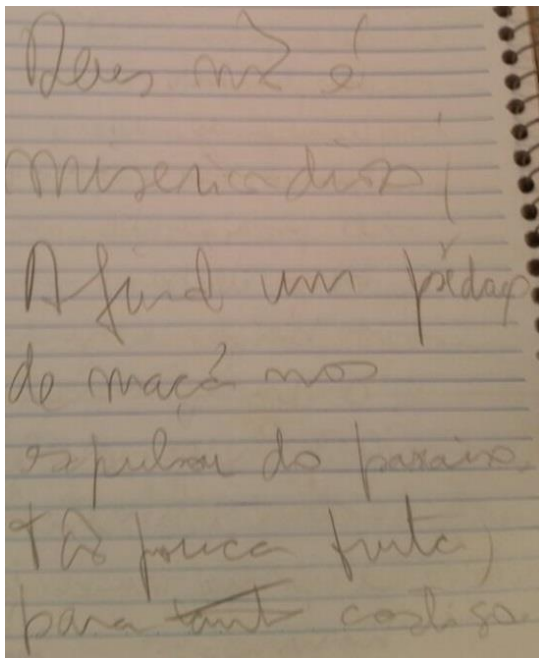 Deus não é
misericordioso!
Afinal um pedaço
de maçã nos
expulsou do paraíso.
Tão pouca fruta,
para tanto castigo